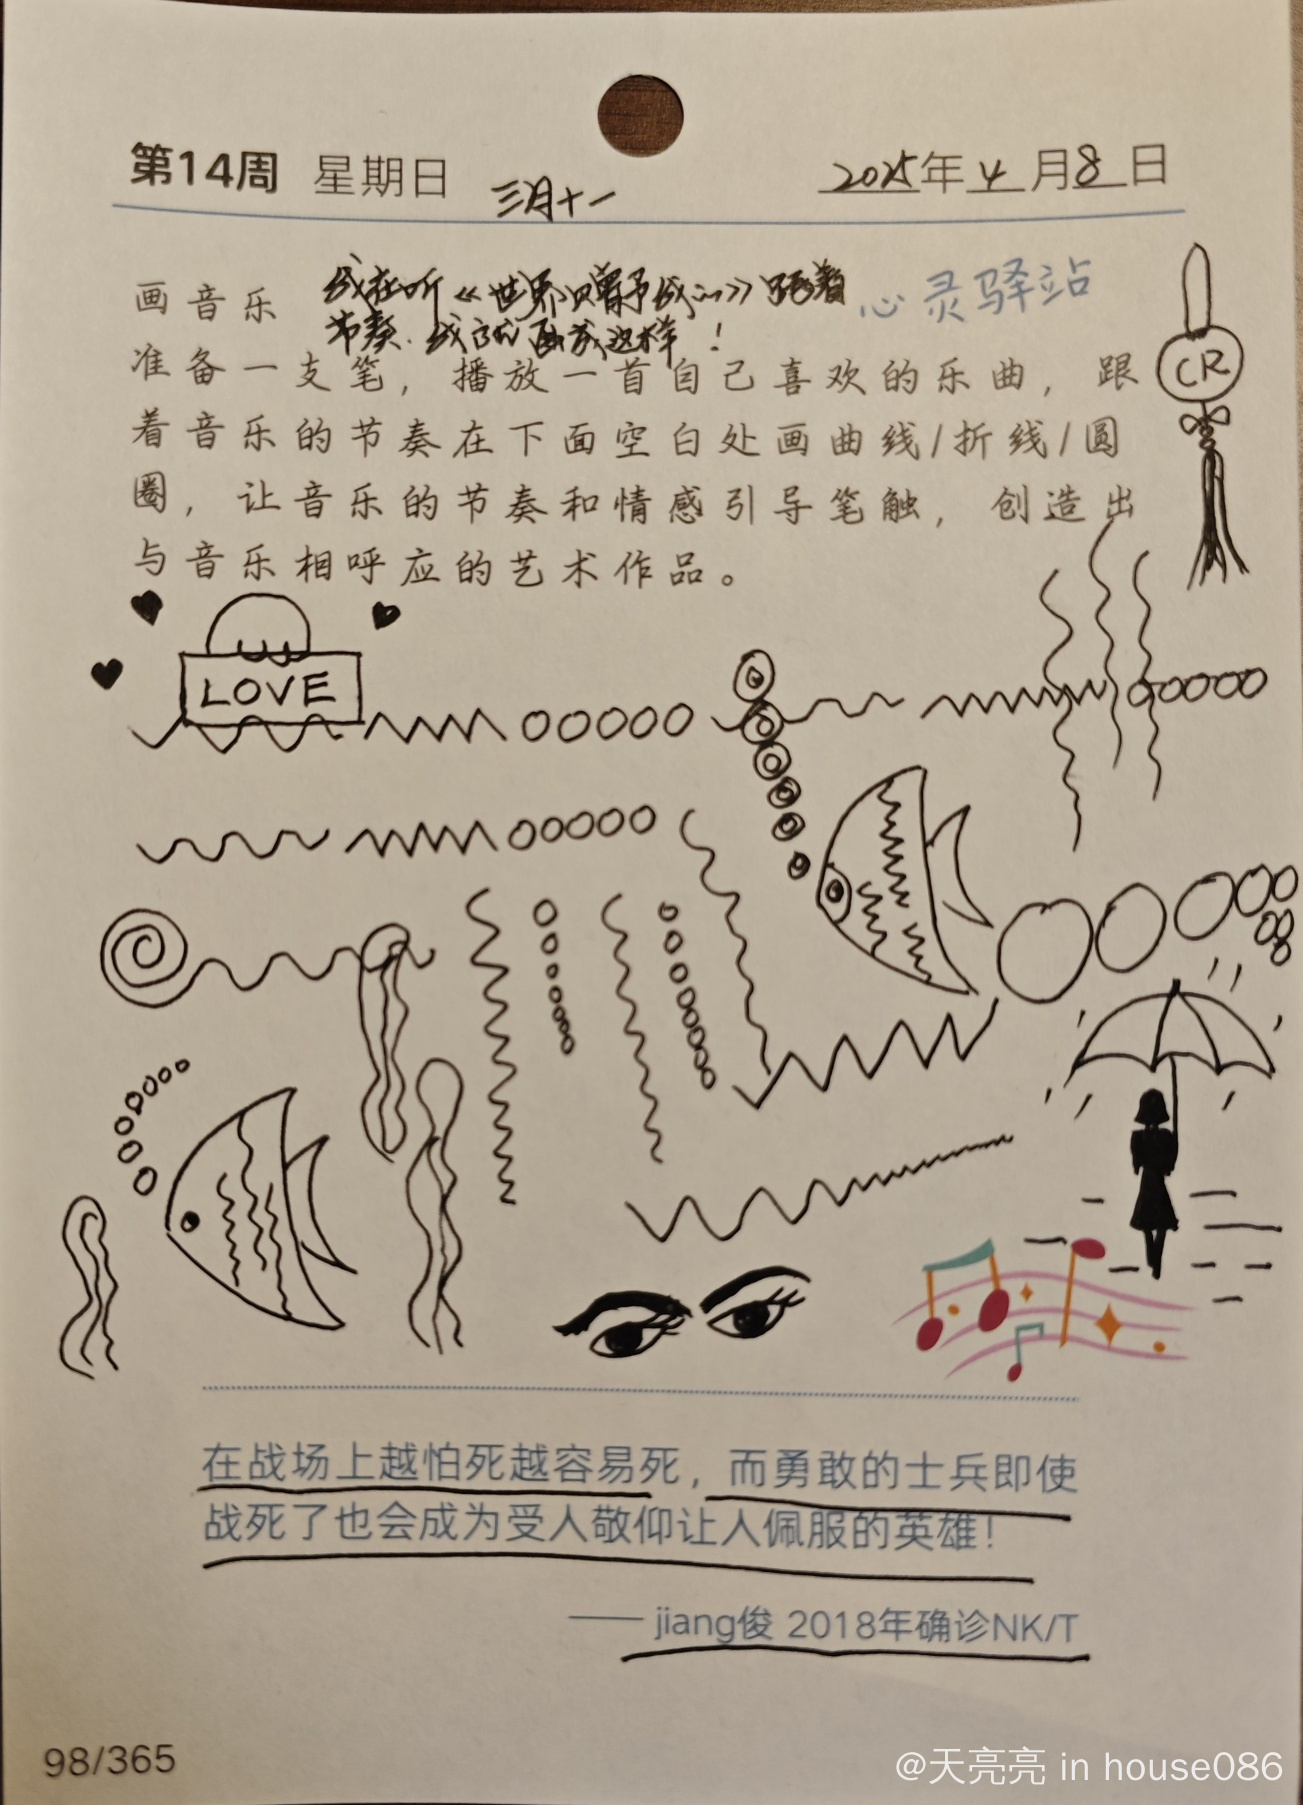 第14周 星期日 三月十一 2025年4月8日
画音乐 我在听《世界赠予我的》跟着 心灵驿站
节奏.我就画成这样!
准备一支笔,播放一首自己喜欢的乐曲,跟
着音乐的节奏在下面空白处画曲线/折线/圆
圈,让音乐的节奏和情感引导笔触,创造出
与音乐相呼应的艺术作品。
CR
LOVE
在战场上越怕死越容易死,而勇敢的士兵即使
战死了也会成为受人敬仰让人佩服的英雄!
—— jiang俊 2018年确诊NK/T
98/365
@天亮亮 in house086